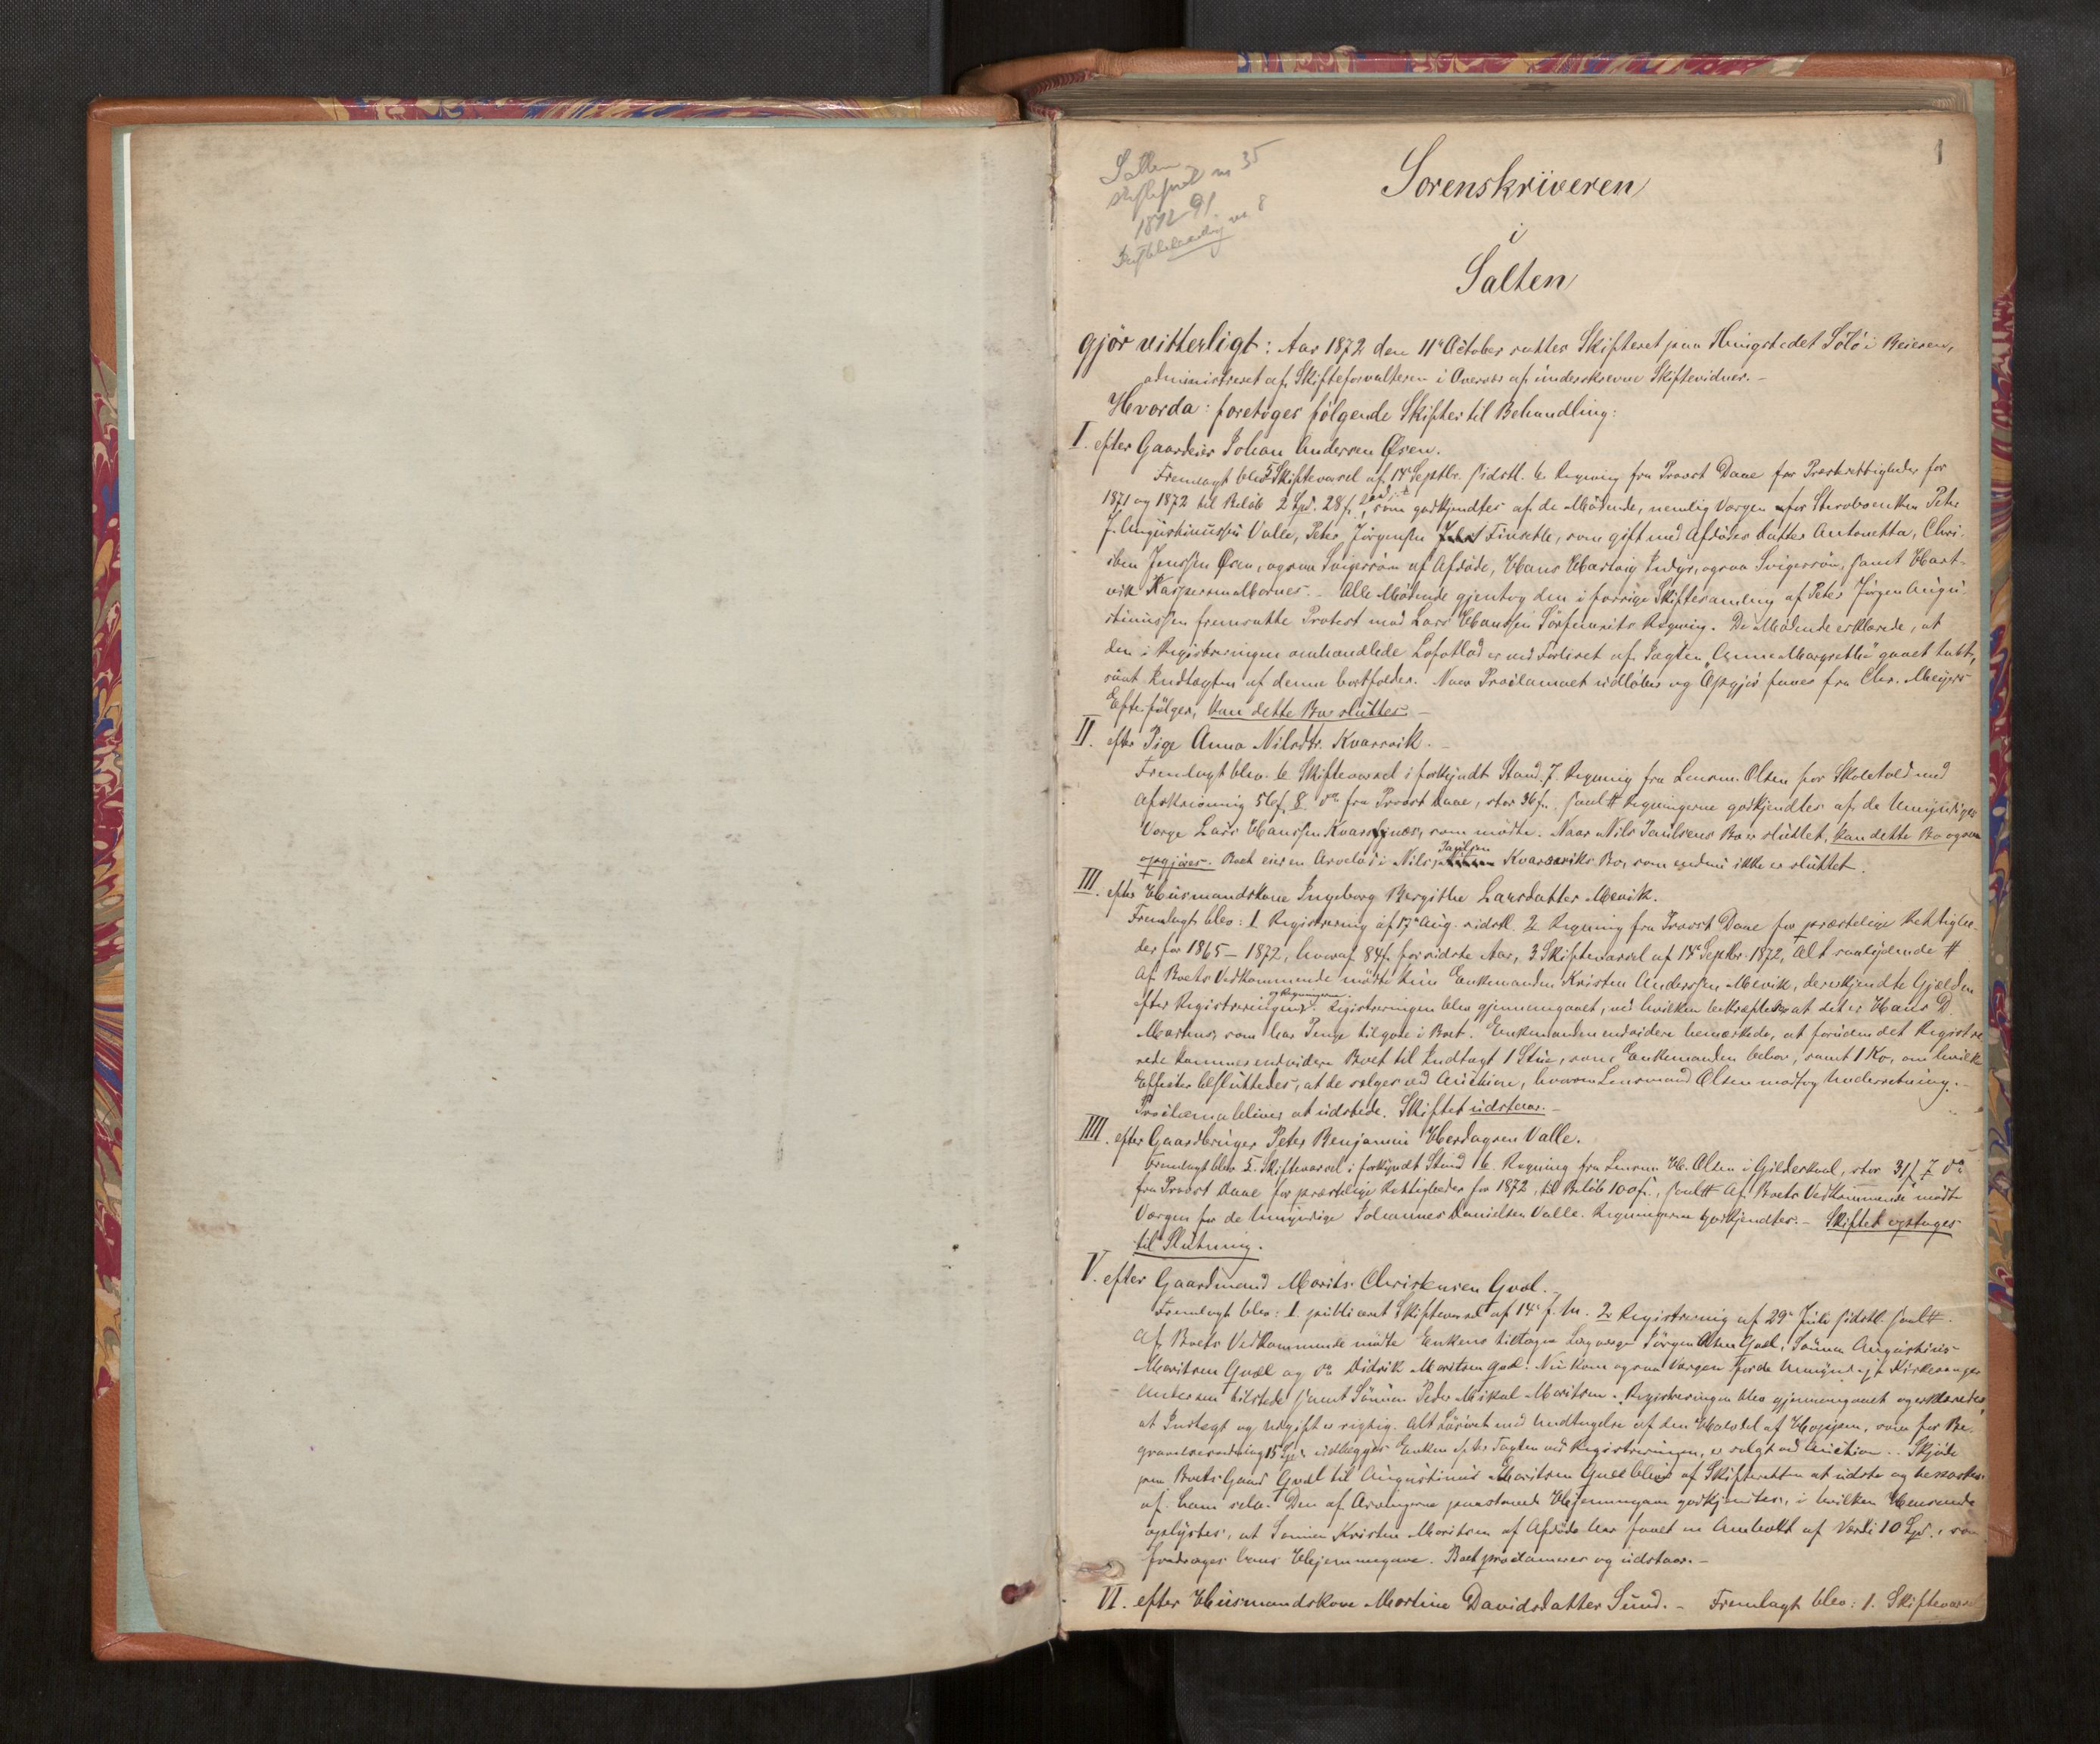 1
Salten
1872-91
Sorenskriveren
i
Salten
gjør vitterligt: Aar 1872 den 11te October sattes Skifteret paa Thingstedet Sölö i Beieren,
administreret af Skifteforvalteren i Overvær af underskrevne Skiftevidner. –
Hvorda: foretoges følgende Skifter til Behandling:
I. efter Gaardeier Johan Andersen Øsen.
Fremlagt blev 5 Skiftevarsel af 14de Septbr. sidstl. 6 Regning fra Provst Daae for Præstrettigheder for
1871 og 1872 til Beløb 2 Spd. 28 s., som godkjendtes af de Mødende, nemlig Værgen for Stervboenken Peter
J. Augustinussen Valle, Peter Jörgensen Finsæthe, som gift med Afdødes Datter Antonetta, Chri-
sten Jenssen Øsen, ogsaa Svigersøn af Afdøde, Hans Hartvig Indyr, ogsaa Svigersøn, samt Hart-
vik Kaspersen Mornes. – Alle Mødende gjentog den i forrige Skiftesamling af Peter Jörgen Augu-
stinussen fremsatte Protest mod Lars Hanssen Sörfinnsets Regning. De Mødende erklærede, at
den i Registreringen omhandlede Lofotlod er ved Forliset af Jagten "Anne Margrethe" gaaet tabt,
saa at Indtægten af denne bortfalder. Naar Proclamaet udløber og Opgjør faaes fra Chr. Meyers
Efterfølger, kan dette Bo sluttes. –
II. efter Pige Anna Nilsdtr. Kvarsvik. –
Fremlagt blev 6 Skiftevarsel i forkyndt Stand. 7. Regning fra Lensm. Olsen for Skoletold med
Afskrivning 56 s. 8 do fra Provst Daae, stor 36 s. saal # Regningerne godkjendtes af de Umyndiges
Værge Lars Hanssen Kvarsnæs, som mødte. Naar Nils Paulsens Bo er sluttet, kan dette Bo ogsaa
opgjøres. Boet eier en Arvelod i Nils Paulsen Kvarsviks Bo, som endnu ikke er sluttet.
III. efter Husmandskone Ingeborg Bergithe Larsdatter Mevik.
Fremlagt blev: 1 Registrering af 17de Aug. sidstl. 2 Regning fra Provst Daae for præstelige Rettighe-
der for 1865 – 1872, hvoraf 84 s. for sidste Aar, 3. Skiftevarsel af 14de Septbr. 1872, Alt saalydende #
Af Boets Vedkommende mødte kun Enkemanden Kristen Anderssen Mevik, der erkjendte Gjælden
efter Registreringen og Regningerne. Registreringen blev gjennemgaaet, ved hvilken bekræftedes at det er Hans D.
Martens, som har Penge tilgode i Boet. Enkemanden endvidere bemærkede, at foruden det Registre-
rede kommer endvidere Boet til Indtægt 1 Stue, som Enkemanden bebor, samt 1 Ko, om hvilke
Effecter besluttedes, at de sælges ved Auction, hvorom Lensmand Olsen modtog Underretning. –
Proclama bliver at udstede. Skiftet udstaar. –
IIII. efter Gaardbruger Peter Benjamin Hersdagsen Valle.
Fremlagt blev 5. Skiftevarsel i forkyndt Stand 6. Regning fra Lensm. H. Olsen i Gildeskaal, stor 31 s. 7 do
fra Provst Daae for præstelige Rettigheder for 1872, til Beløb 100 s., saal # Af Boets Vedkommende mødte
Værgen for de Umyndige Johannes Danielsen Valle. Regningerne godkjendtes. – Skiftet optages
til Slutning.
V. efter Gaardmand Morits Christensen Gvæl.
Fremlagt blev: 1 publiceret Skiftevarsel af 14de f. M. 2. Registrering af 29de Juli sidstl. saal #.
Af Boets Vedkommende mødte Enkens tiltagne Lagværge Jörgen Olsen Gvæl, Sønnen Augustinus
Moritsen Gvæl og do Didrik Moritsen Gvæl. Nu kom ogsaa Værgen for de Umyndige Kirkesanger
Andersen tilstede samt Sønnen Peder Mikal Moritsen. Registreringen blev gjennemgaaet og erklæredes,
at Indtægt og Udgift er rigtig. Alt Løsøret med Undtagelse af den Halvdel af Hoppen, som for Be-
gravelsesomkostning 15 Spd. udlægges Enken efter Taxten ved Registreringen, er solgt ved Auction. Skjøde
paa Boets Gaard Gvæl til Augustinus Moritsen Gvæl bliver af Skifteretten at udstede og besørges
af ham selv. Den af Arvingerne paastaaede Hjemmegave godkjendtes, i hvilken Henseende
oplystes, at Sønnen Kristen Moritsen af Afdøde har faaet en Ambolt af Værdi 10 Spd., som
fradrages hans Hjemmegave. Boet proclameres og udstaar. –
VI. efter Husmandskone Martine Davidsdatter Sund. – Fremlagt blev: 1. Skiftevarsel